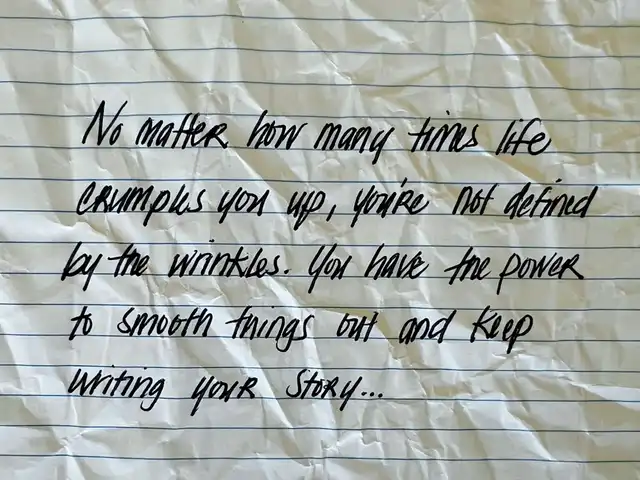 No matter how many times life
crumples you up, you're not defined
by the wrinkles. You have the power
to smooth things out and keep
writing your story...